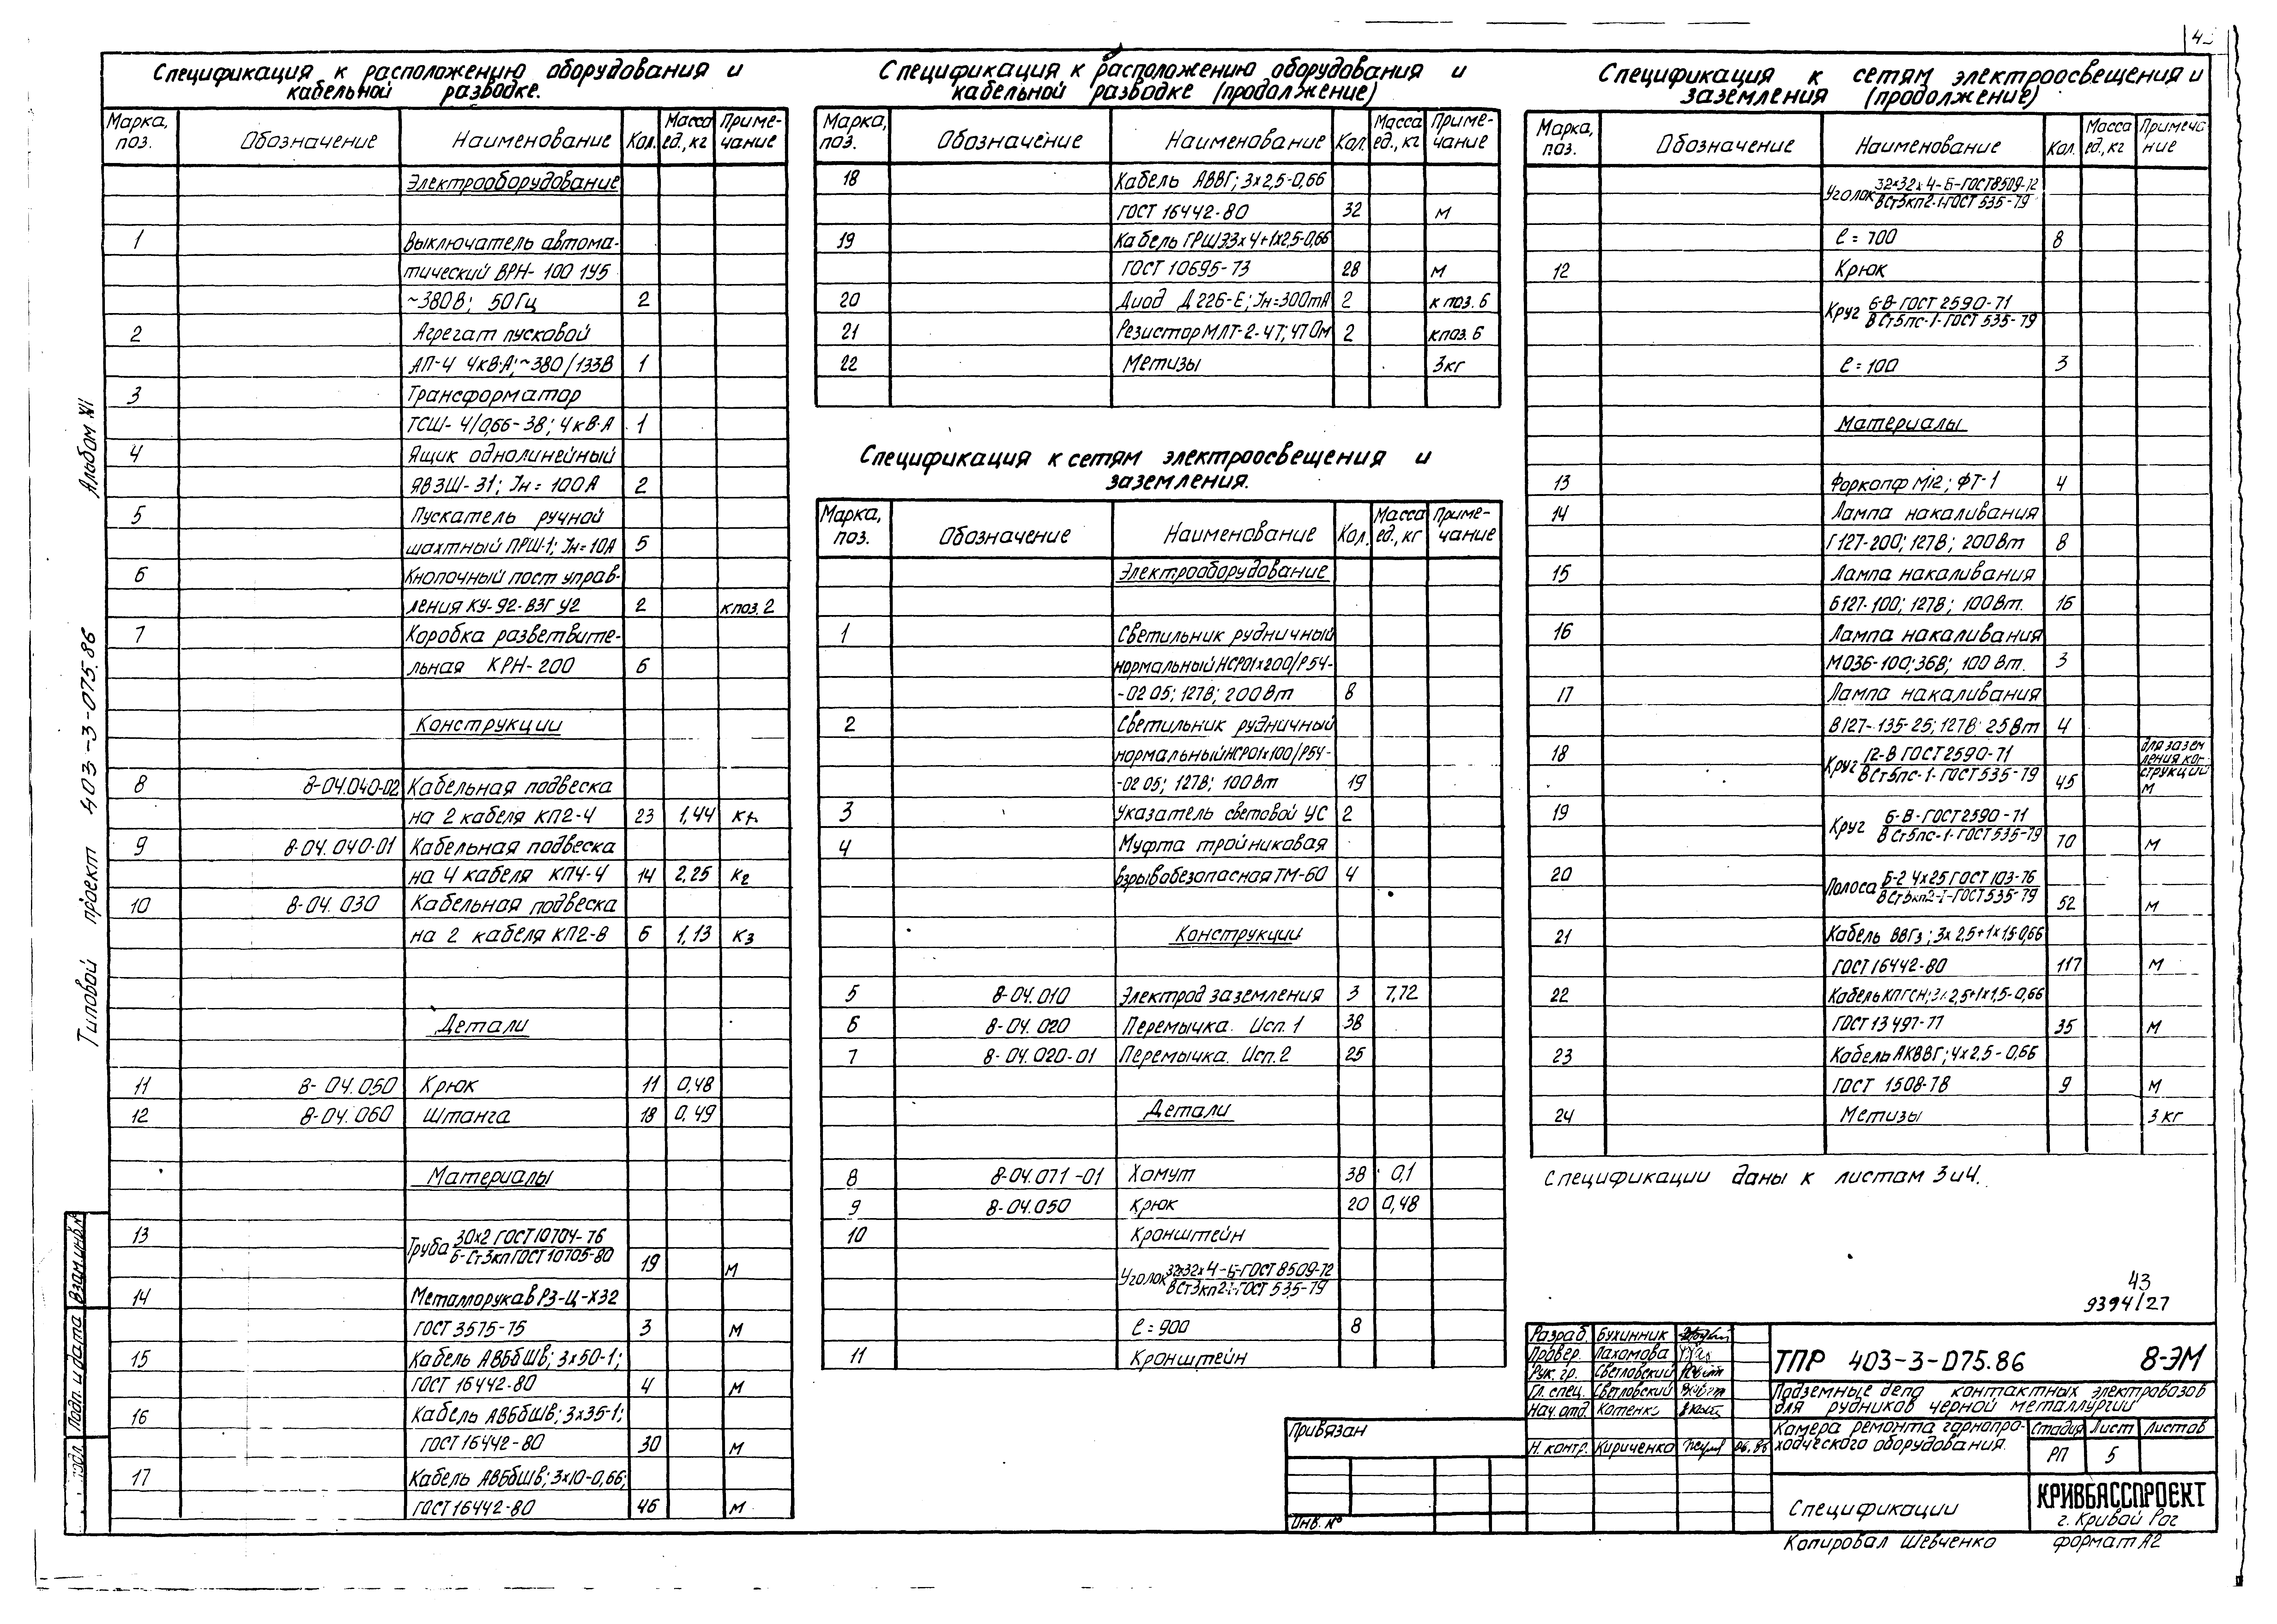 Спецификация к расположению оборудования и
кабельной разводке.
Марка, поз. Обозначение Наименование Кол. Масса ед., кг Приме-чание
Электрооборудование
1 Выключатель автома-
тический ВРН-100 1У5
~380В; 50Гц 2
2 Агрегат пусковой
АП-4 4кВ·А; ~380/133В 1
3 Трансформатор
ТСШ-4/0,66-38; 4кВ·А 1
4 Ящик однолинейный
ЯВЗШ-31; Iн=100А 2
5 Пускатель ручной
шахтный ПРШ-1; Iн=10А 5
6 Кнопочный пост управ-
ления КУ-92-ВЗГ У2 2 к поз. 2
7 Коробка разветвите-
льная КРН-200 6
Конструкции
8 8-04.040-02 Кабельная подвеска
на 2 кабеля КП2-4 23 1,44 К1
9 8-04.040-01 Кабельная подвеска
на 4 кабеля КП4-4 14 2,25 К2
10 8-04.030 Кабельная подвеска
на 2 кабеля КП2-8 6 1,13 К3
Детали
11 8-04.050 Крюк 11 0,48
12 8-04.060 Штанга 18 0,49
Материалы
13 Труба 30х2 ГОСТ 10704-76
Б-Ст3кп ГОСТ 10705-80 19 м
14 Металлорукав РЗ-Ц-Х32
ГОСТ 3575-75 3 м
15 Кабель АВБбШв; 3х50-1;
ГОСТ 16442-80 4 м
16 Кабель АВБбШв; 3х35-1;
ГОСТ 16442-80 30 м
17 Кабель АВБбШв; 3х10-0,66;
ГОСТ 16442-80 46 м
Спецификация к расположению оборудования и
кабельной разводке (продолжение)
Марка, поз. Обозначение Наименование Кол. Масса ед., кг Приме-чание
18 Кабель АВВГ; 3х2,5-0,66
ГОСТ 16442-80 32 м
19 Кабель ГРШЭ3х4+1х2,5-0,66
ГОСТ 10695-73 28 м
20 Диод Д226-Е; Iн=300mA 2 к поз. 6
21 Резистор МЛТ-2-47; 47 Ом 2 к поз. 6
22 Метизы 3кг
Спецификация к сетям электроосвещения и
заземления.
Марка, поз. Обозначение Наименование Кол. Масса ед., кг Приме-чание
Электрооборудование
1 Светильник рудничный
нормальный НСР01х200/Р54-
-02 05; 127В; 200Вт 8
2 Светильник рудничный
нормальный НСР01х100/Р54-
-02 05; 127В; 100Вт 19
3 Указатель световой УС 2
4 Муфта тройниковая
взрывобезопасная ТМ-60 4
Конструкции
5 8-04.010 Электрод заземления 3 7,72
6 8-04.020 Перемычка. Исп. 1 38
7 8-04.020-01 Перемычка. Исп. 2 25
Детали
8 8-04.071-01 Хомут 38 0,1
9 8-04.050 Крюк 20 0,48
10 Кронштейн
Уголок 32х32х4-Б-ГОСТ 8509-72
ВСт3кп2-1-ГОСТ 535-79
ℓ=900 8
11 Кронштейн
Спецификация к сетям электроосвещения и
заземления (продолжение)
Марка, поз. Обозначение Наименование Кол. Масса ед., кг Примеча ние
Уголок 32х32х4-Б-ГОСТ 8509-72
ВСт3кп2-1-ГОСТ 535-79
ℓ=700 8
12 Крюк
Круг 6-В-ГОСТ 2590-71
ВСт5пс-1-ГОСТ 535-79
ℓ=100 3
Материалы
13 Форкопф М12; ФТ-1 4
14 Лампа накаливания
Г127-200; 127В; 200Вт 8
15 Лампа накаливания
Б127-100; 127В; 100Вт. 16
16 Лампа накаливания
МО36-100; 36В; 100 Вт. 3
17 Лампа накаливания
В127-135-25; 127В 25Вт 4
18 Круг 12-В ГОСТ 2590-71
ВСт5пс-1-ГОСТ 535-79 45 для зазем ления кон-струкций м
19 Круг 6-В-ГОСТ 2590-71
ВСт5пс-1-ГОСТ 535-79 70 м
20 Полоса Б-2 4х25 ГОСТ 103-76
ВСт3кп2-1-ГОСТ 535-79 52 м
21 Кабель ВВГз; 3х2,5+1х1,5-0,66
ГОСТ 16442-80 117 м
22 Кабель КПГСН; 3х2,5+1х1,5-0,66
ГОСТ 13497-77 35 м
23 Кабель АКВВГ; 4х2,5-0,66
ГОСТ 1508-78 9 м
24 Метизы 3 кг
Спецификации даны к листам 3 и 4.
43
9394/27
Разраб. Бухинник
Провер. Пахомова
Рук. гр. Светловский
Гл. спец. Светловский
Нач. отд. Котенко
Н. контр. Кириченко 06.86
ТПР 403-3-075.86 8-ЭМ
Подземные депо контактных электровозов
для рудников черной металлургии
Камера ремонта горнопро-
ходческого оборудования.
Стадия Лист Листов
РП 5
Спецификации
КРИВБАССПРОЕКТ
г. Кривой Рог
Копировал Шевченко формат А2
Привязан
Инв. №
Альбом XI
Типовой проект 403-3-075.86
Взам. инв. №
Подп. и дата
подл.